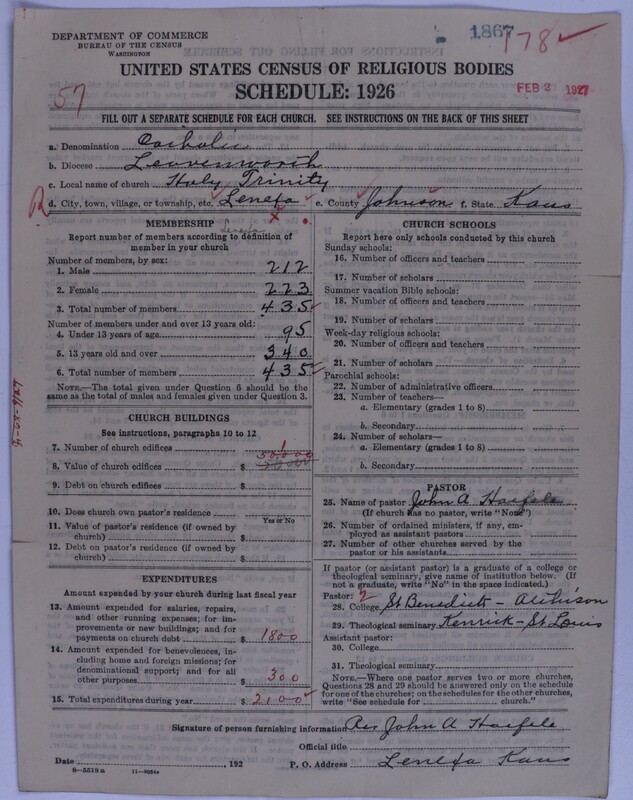 DEPARTMENT OF COMMERCE
BUREAU OF THE CENSUS
WASHINGTON
1867
178 ✓
UNITED STATES CENSUS OF RELIGIOUS BODIES
SCHEDULE: 1926
FEB 2 1927
57
FILL OUT A SEPARATE SCHEDULE FOR EACH CHURCH. SEE INSTRUCTIONS ON THE BACK OF THIS SHEET
a. Denomination Catholic
b. Diocese Leavenworth
c. Local name of church Holy Trinity
d. City, town, village, or township, etc. Lenexa e. County Johnson f. State Kans
MEMBERSHIP
Lenexa
Report number of members according to definition of
member in your church
Number of members, by sex:
1. Male 212
2. Female 223
3. Total number of members 435
Number of members under and over 13 years old:
4. Under 13 years of age 95
5. 13 years old and over 340
6. Total number of members 435
NOTE.—The total given under Question 6 should be
same as the total of males and females given under Question 3.
CHURCH BUILDINGS
See instructions, paragraphs 10 to 12
7. Number of church edifices 1
8. Value of church edifices $
9. Debt on church edifices $
10. Does church own pastor's residence
Yes or No
11. Value of pastor's residence (if owned by
church) $
12. Debt on pastor's residence (if owned by
church) $
EXPENDITURES
Amount expended by your church during last fiscal year
13. Amount expended for salaries, repairs,
and other running expenses; for im-
provements or new buildings; and for
payments on church debt $ 1800
14. Amount expended for benevolences, in-
cluding home and foreign missions; for
denominational support; and for all
other purposes $ 300
15. Total expenditures during year $ 2100
CHURCH SCHOOLS
Report here only schools conducted by this church
Sunday schools:
16. Number of officers and teachers
17. Number of scholars
Summer vacation Bible schools:
18. Number of officers and teachers
19. Number of scholars
Week-day religious schools:
20. Number of officers and teachers
21. Number of scholars
Parochial schools:
22. Number of administrative officers
23. Number of teachers—
a. Elementary (grades 1 to 8)
b. Secondary
24. Number of scholars—
a. Elementary (grades 1 to 8)
b. Secondary
PASTOR
25. Name of pastor John A Haefele
(If church has no pastor, write "None")
26. Number of ordained ministers, if any, em-
ployed as assistant pastors
27. Number of other churches served by the
pastor or his assistants
If pastor (or assistant pastor) is a graduate of a college or
theological seminary, give name of institution below. (If
not a graduate, write "No" in the space indicated.)
Pastor: 2
28. College St Benedicts - Atchison
29. Theological seminary Kenrick - St Louis
Assistant pastor:
30. College
31. Theological seminary
NOTE.—Where one pastor serves two or more churches,
Questions 28 and 29 should be answered only on the schedule
for one of the churches; on the schedules for the other churches,
write "See schedule for church."
Signature of person furnishing information Rev John A Haefele
Official title
Date , 192
P. O. Address Lenexa Kans
8—5518 a